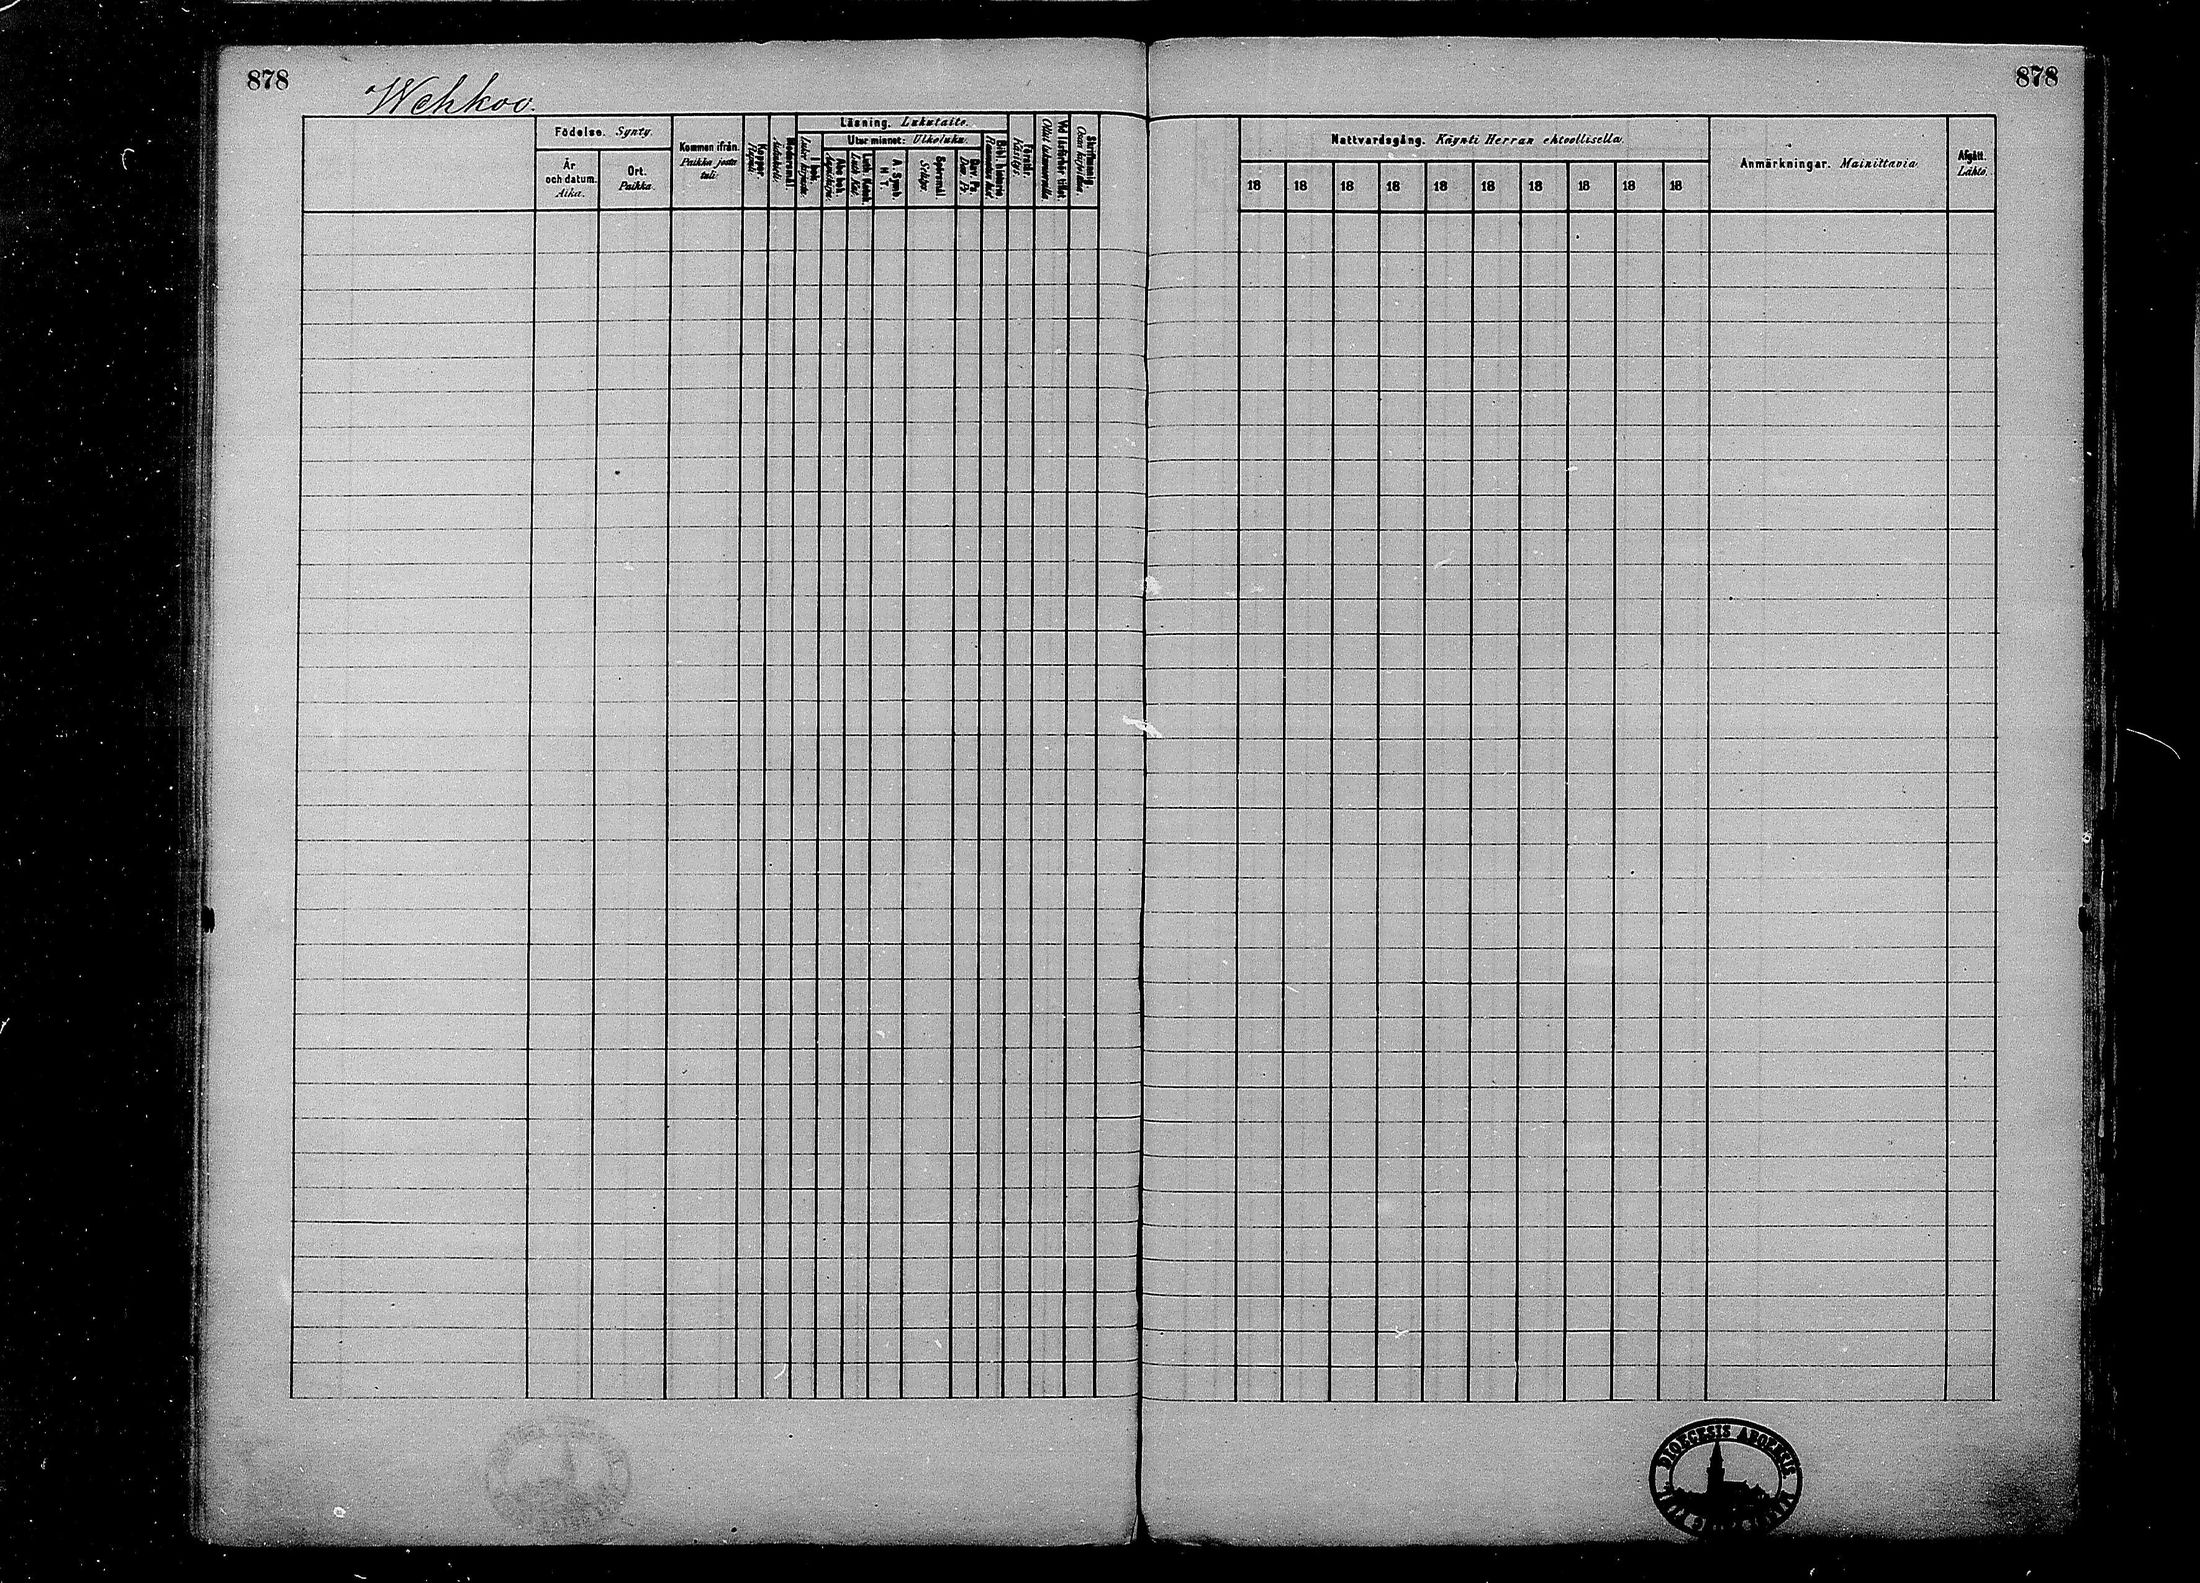 878
Wehkoo.
878
Födelse. Synty.
År och datum. Aika.
Ort. Paikka.
Kommen ifrån. Paikka josta tuli.
Koppor. Rupuli.
Modersmål. Äidinkieli.
Läsning. Lukutaito.
I bok.
Utur minnet: Ulkoluku.
Abc bok.
Luth. Katek.
A. Symb. H. T.
Spörsmål.
Dav. Ps. Dav. Ps.
Bibl. historia.
Förstår. Käsitys.
Vid läsförhör tillst.
Skriftning.
Nattvardsgång. Käynti Herran ehtoollisella.
18 18 18 18 18 18 18 18 18 18
Anmärkningar. Mainittavia.
Afgått. Lähtö.
DIOECESIS ABOENSIS